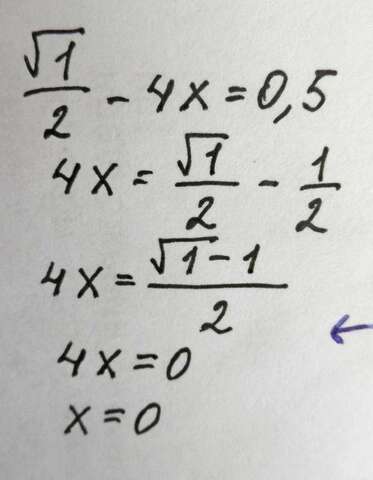 √1/2 - 4x = 0,5
4x = √1/2 - 1/2
4x = (√1 - 1)/2
4x = 0
x = 0